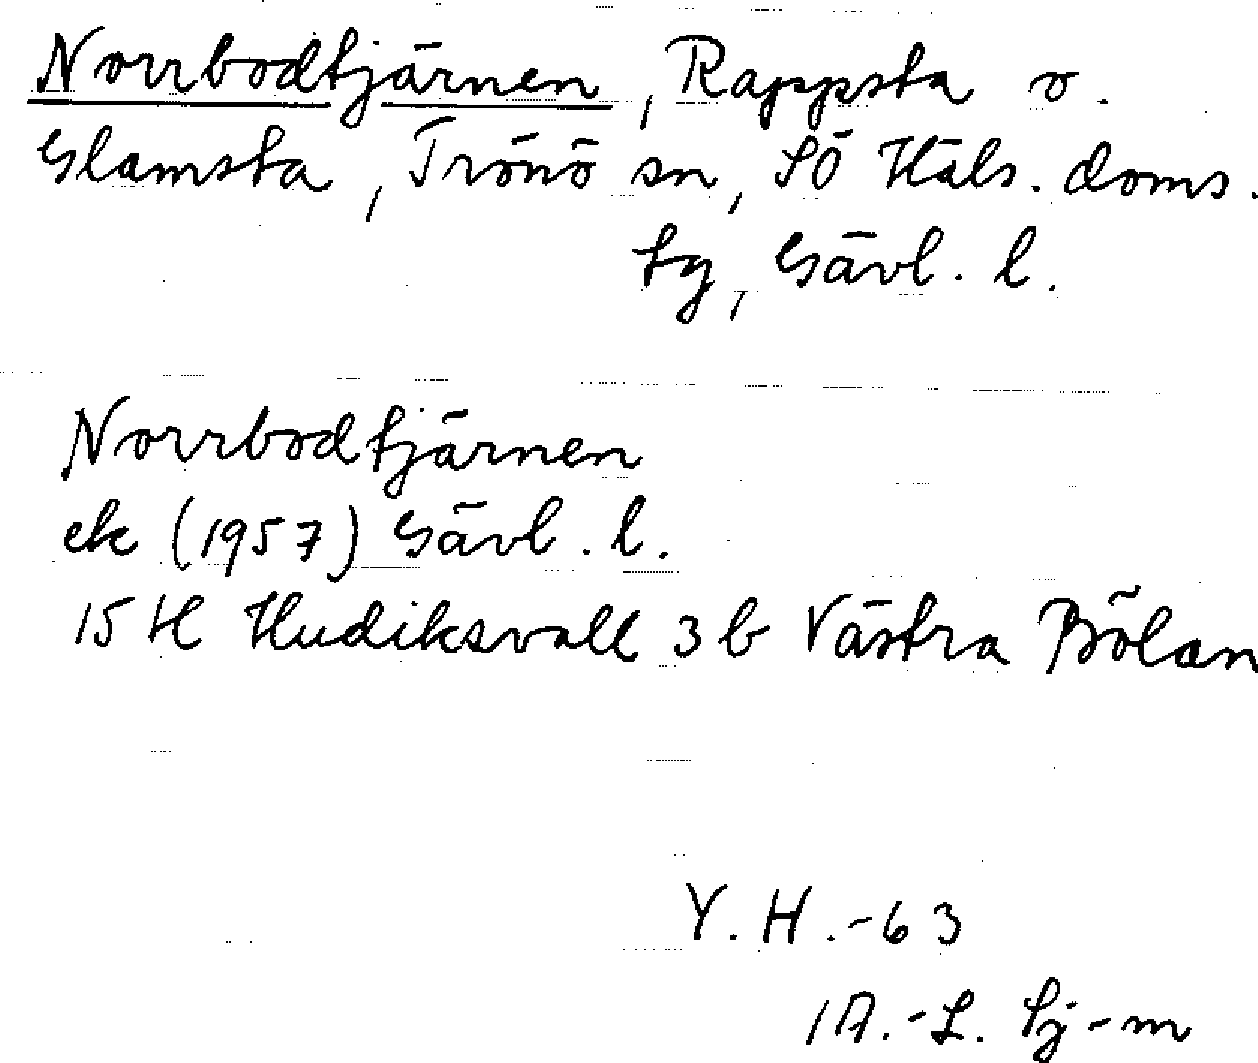 Norrbodtjärnen, Rappsta o.
Glamsta, Trönö sn, SÖ Häls. doms.
tg, Gävl. l.
Norrbodtjärnen
ek (1957) Gävl. l.
15 H Hudiksvall 3 b Västra Bölan
Y. H. -63
/A.-L. Lj-m